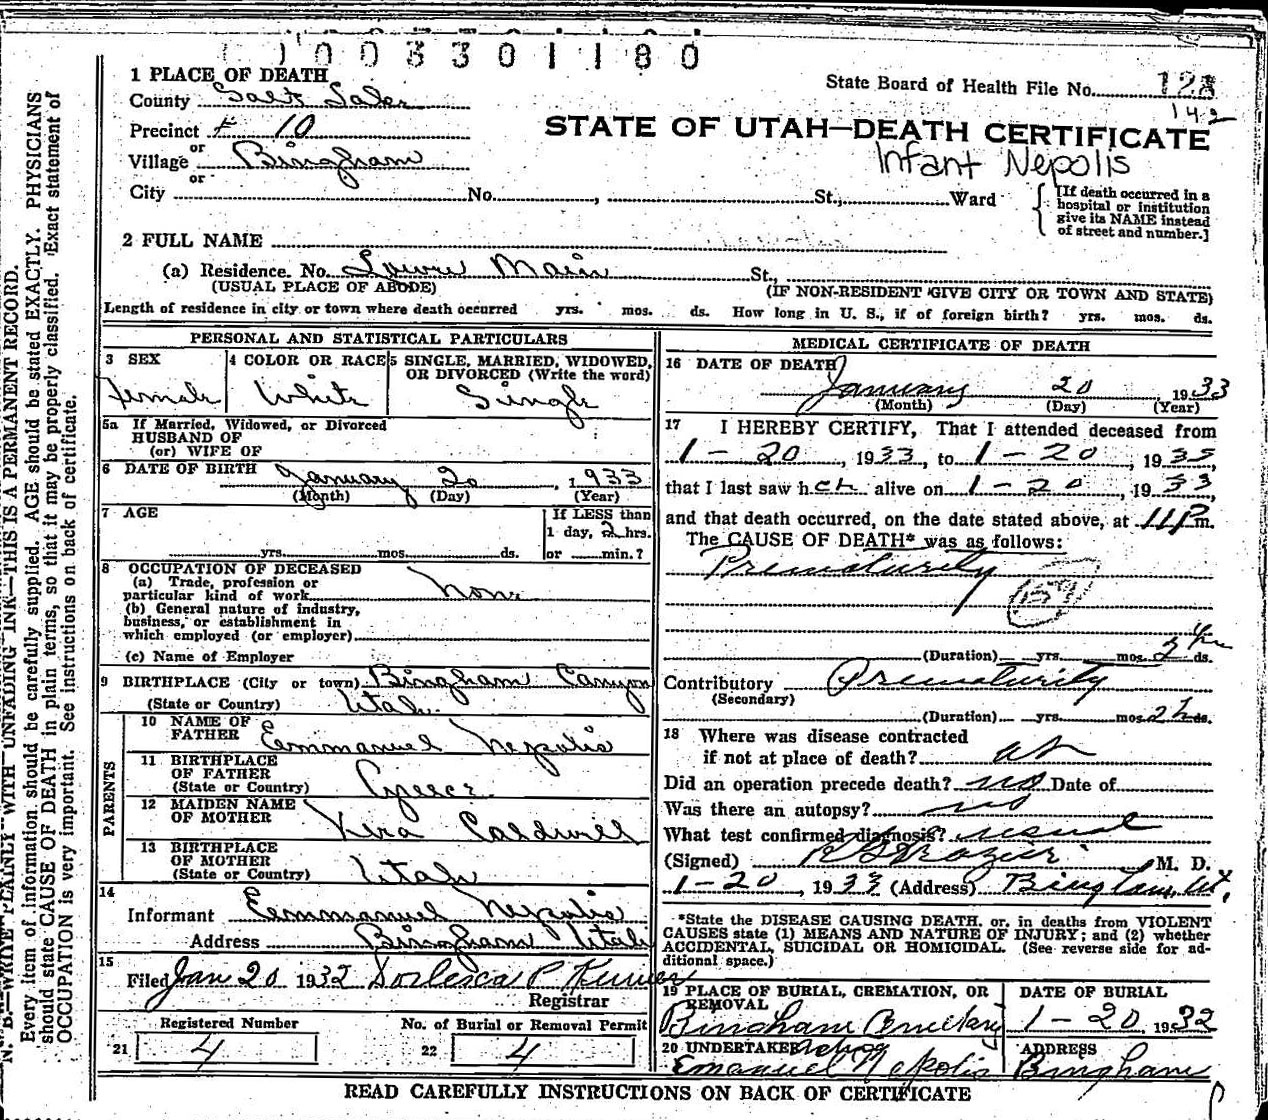 1003301180
1 PLACE OF DEATH
County Salt Lake
State Board of Health File No. 128
142
Precinct # 10
or
Village Bingham
or
STATE OF UTAH—DEATH CERTIFICATE
Infant Nepolis
City No. , St., Ward
[If death occurred in a
hospital or institution
give its NAME instead
of street and number.]
2 FULL NAME
(a) Residence. No. Lower Main St.,
(USUAL PLACE OF ABODE) (IF NON-RESIDENT GIVE CITY OR TOWN AND STATE)
Length of residence in city or town where death occurred yrs. mos. ds. How long in U. S., if of foreign birth? yrs. mos. ds.
PERSONAL AND STATISTICAL PARTICULARS
3 SEX
Female
4 COLOR OR RACE
White
5 SINGLE, MARRIED, WIDOWED,
OR DIVORCED (Write the word)
Single
5a If Married, Widowed, or Divorced
HUSBAND OF
(or) WIFE OF
6 DATE OF BIRTH January 20, 1933
(Month) (Day) (Year)
7 AGE
yrs. mos. ds.
If LESS than
1 day, 2 hrs.
or min.?
8 OCCUPATION OF DECEASED
(a) Trade, profession or
particular kind of work None
(b) General nature of industry,
business, or establishment in
which employed (or employer)
(c) Name of Employer
9 BIRTHPLACE (City or town) Bingham Canyon
(State or Country) Utah.
PARENTS
10 NAME OF
FATHER Eemmanuel Nepolis
11 BIRTHPLACE
OF FATHER
(State or Country) Greece
12 MAIDEN NAME
OF MOTHER Vera Caldwell
13 BIRTHPLACE
OF MOTHER
(State or Country) Utah
14
Informant Eemmanuel Nepolis
Address Bingham Utah
15
Filed Jan 20 1932 P
Registrar
Registered Number
21 4
No. of Burial or Removal Permit
22 4
MEDICAL CERTIFICATE OF DEATH
16 DATE OF DEATH
January 20 1933
(Month) (Day) (Year)
17 I HEREBY CERTIFY, That I attended deceased from
1-20, 1933, to 1-20, 1933,
that I last saw her alive on 1-20, 1933,
and that death occurred, on the date stated above, at 11 P m.
The CAUSE OF DEATH* was as follows:
Prematurity
159
(Duration) yrs. mos. 2 hr ds.
Contributory Prematurity
(Secondary)
(Duration) yrs. mos. 2 h ds.
18 Where was disease contracted
if not at place of death? at
Did an operation precede death? no Date of
Was there an autopsy? no
What test confirmed diagnosis? usual
(Signed) R G Frazier M. D.
1-20, 1933 (Address) Bingham, Ut.
*State the DISEASE CAUSING DEATH, or, in deaths from VIOLENT
CAUSES state (1) MEANS AND NATURE OF INJURY; and (2) whether
ACCIDENTAL, SUICIDAL OR HOMICIDAL. (See reverse side for ad-
ditional space.)
19 PLACE OF BURIAL, CREMATION, OR
REMOVAL
Bingham Cemetary
DATE OF BURIAL
1-20, 1932
20 UNDERTAKER
Emanuel Nepolis
ADDRESS
Bingham
READ CAREFULLY INSTRUCTIONS ON BACK OF CERTIFICATE
N. B.—WRITE PLAINLY WITH UNFADING INK—THIS IS A PERMANENT RECORD.
Every item of information should be carefully supplied. AGE should be stated EXACTLY. PHYSICIANS
should state CAUSE OF DEATH in plain terms, so that it may be properly classified. Exact statement of
OCCUPATION is very important. See instructions on back of certificate.